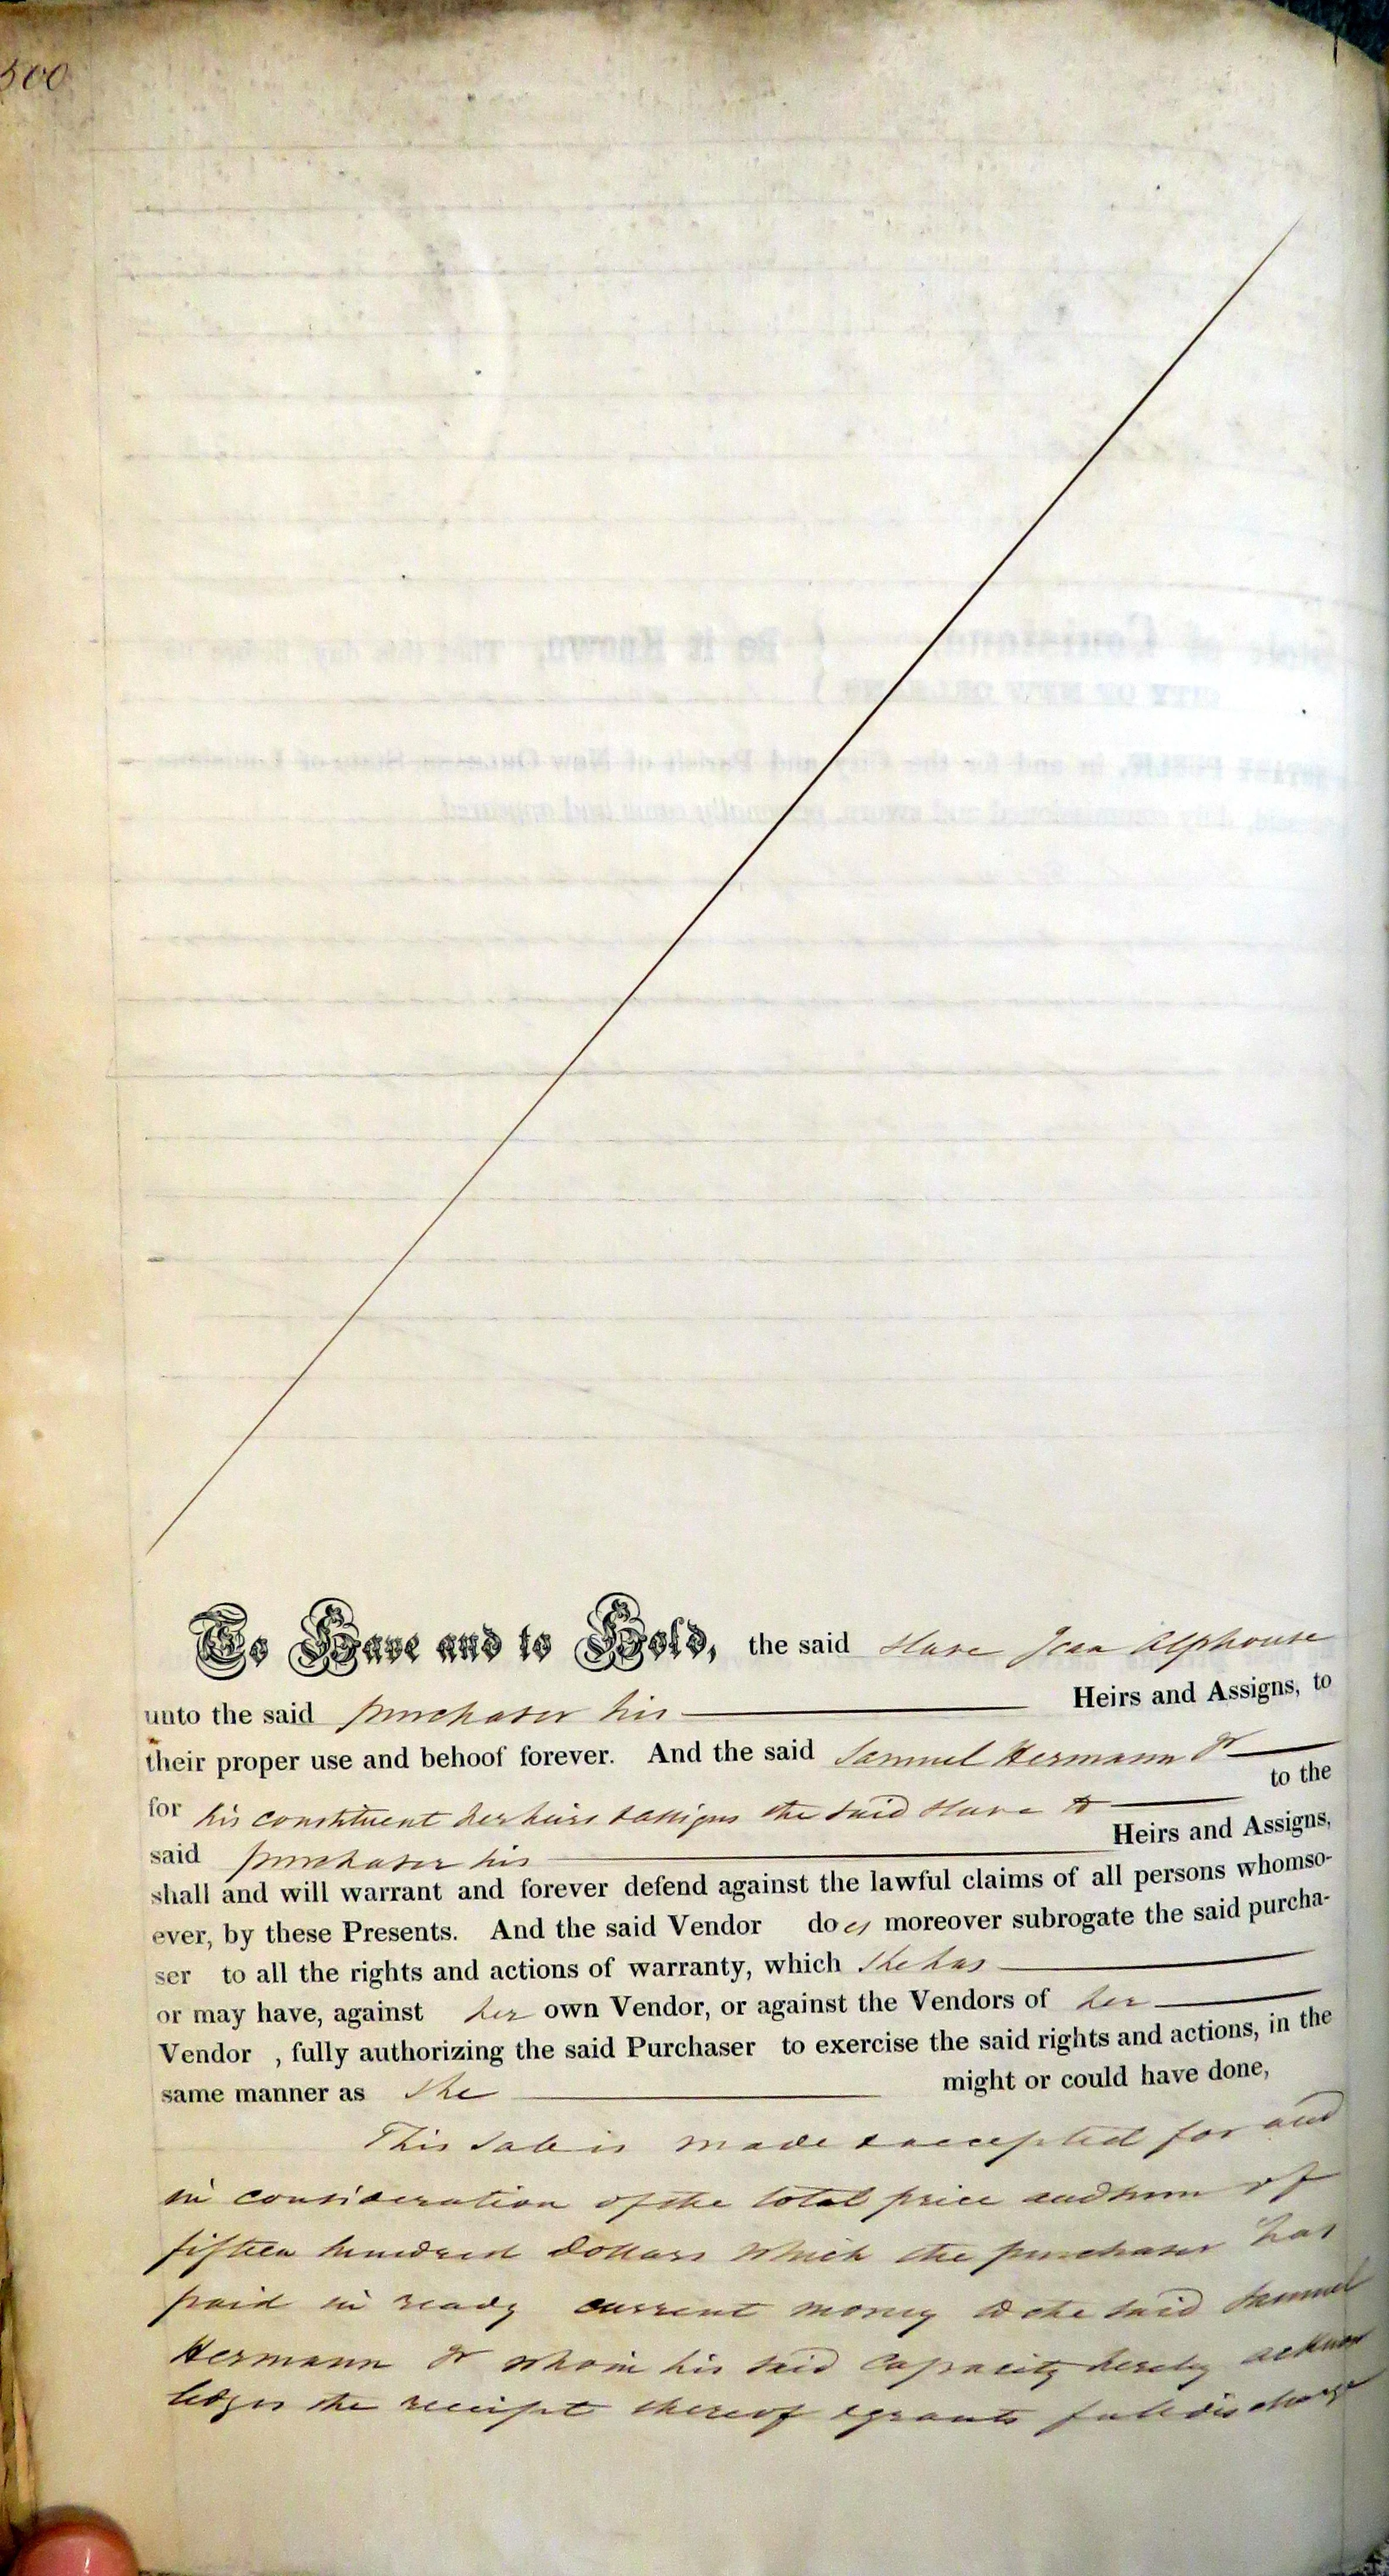 500
To Have and to Hold, the said slave Jean Alphonse
unto the said purchaser his Heirs and Assigns, to
their proper use and behoof forever. And the said Samuel Hermann Jr
for his constituent her heirs & assigns the said slave to to the
said purchaser his Heirs and Assigns,
shall and will warrant and forever defend against the lawful claims of all persons whomso-
ever, by these Presents. And the said Vendor does moreover subrogate the said purcha-
ser to all the rights and actions of warranty, which she has
or may have, against her own Vendor, or against the Vendors of her
Vendor , fully authorizing the said Purchaser to exercise the said rights and actions, in the
same manner as she might or could have done,
This sale is made & accepted for and
in consideration of the total price and sum of
fifteen hundred dollars which the purchaser has
paid in ready current money to the said Samuel
Hermann Jr who in his said capacity hereby acknow
ledges the receipt thereof & grants full discharge